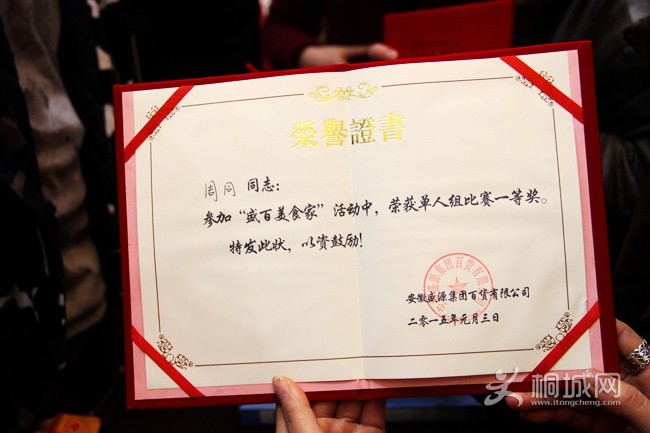 榮譽證書
周同 同志：
参加“盛百美食家”活动中，荣获单人组比赛一等奖。
特发此状，以资鼓励！
安徽盛源集团百货有限公司
二零一五年元月三日
桐城网
www.itongcheng.com